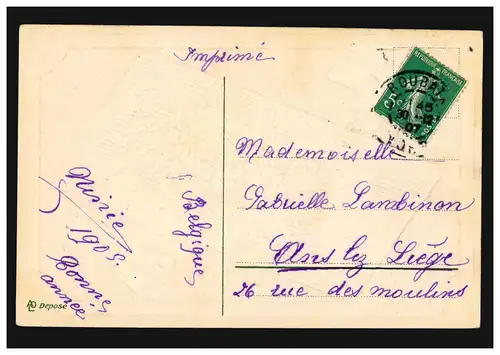 Imprimé
REPUBLIQUE FRANÇAISE
5c
ROUBAIX
45
30 -12
07
Mademoiselle
Gabrielle Lambinon
Ans lez Liège
26 rue des moulins
Belgique
Bonne
année
Déposé